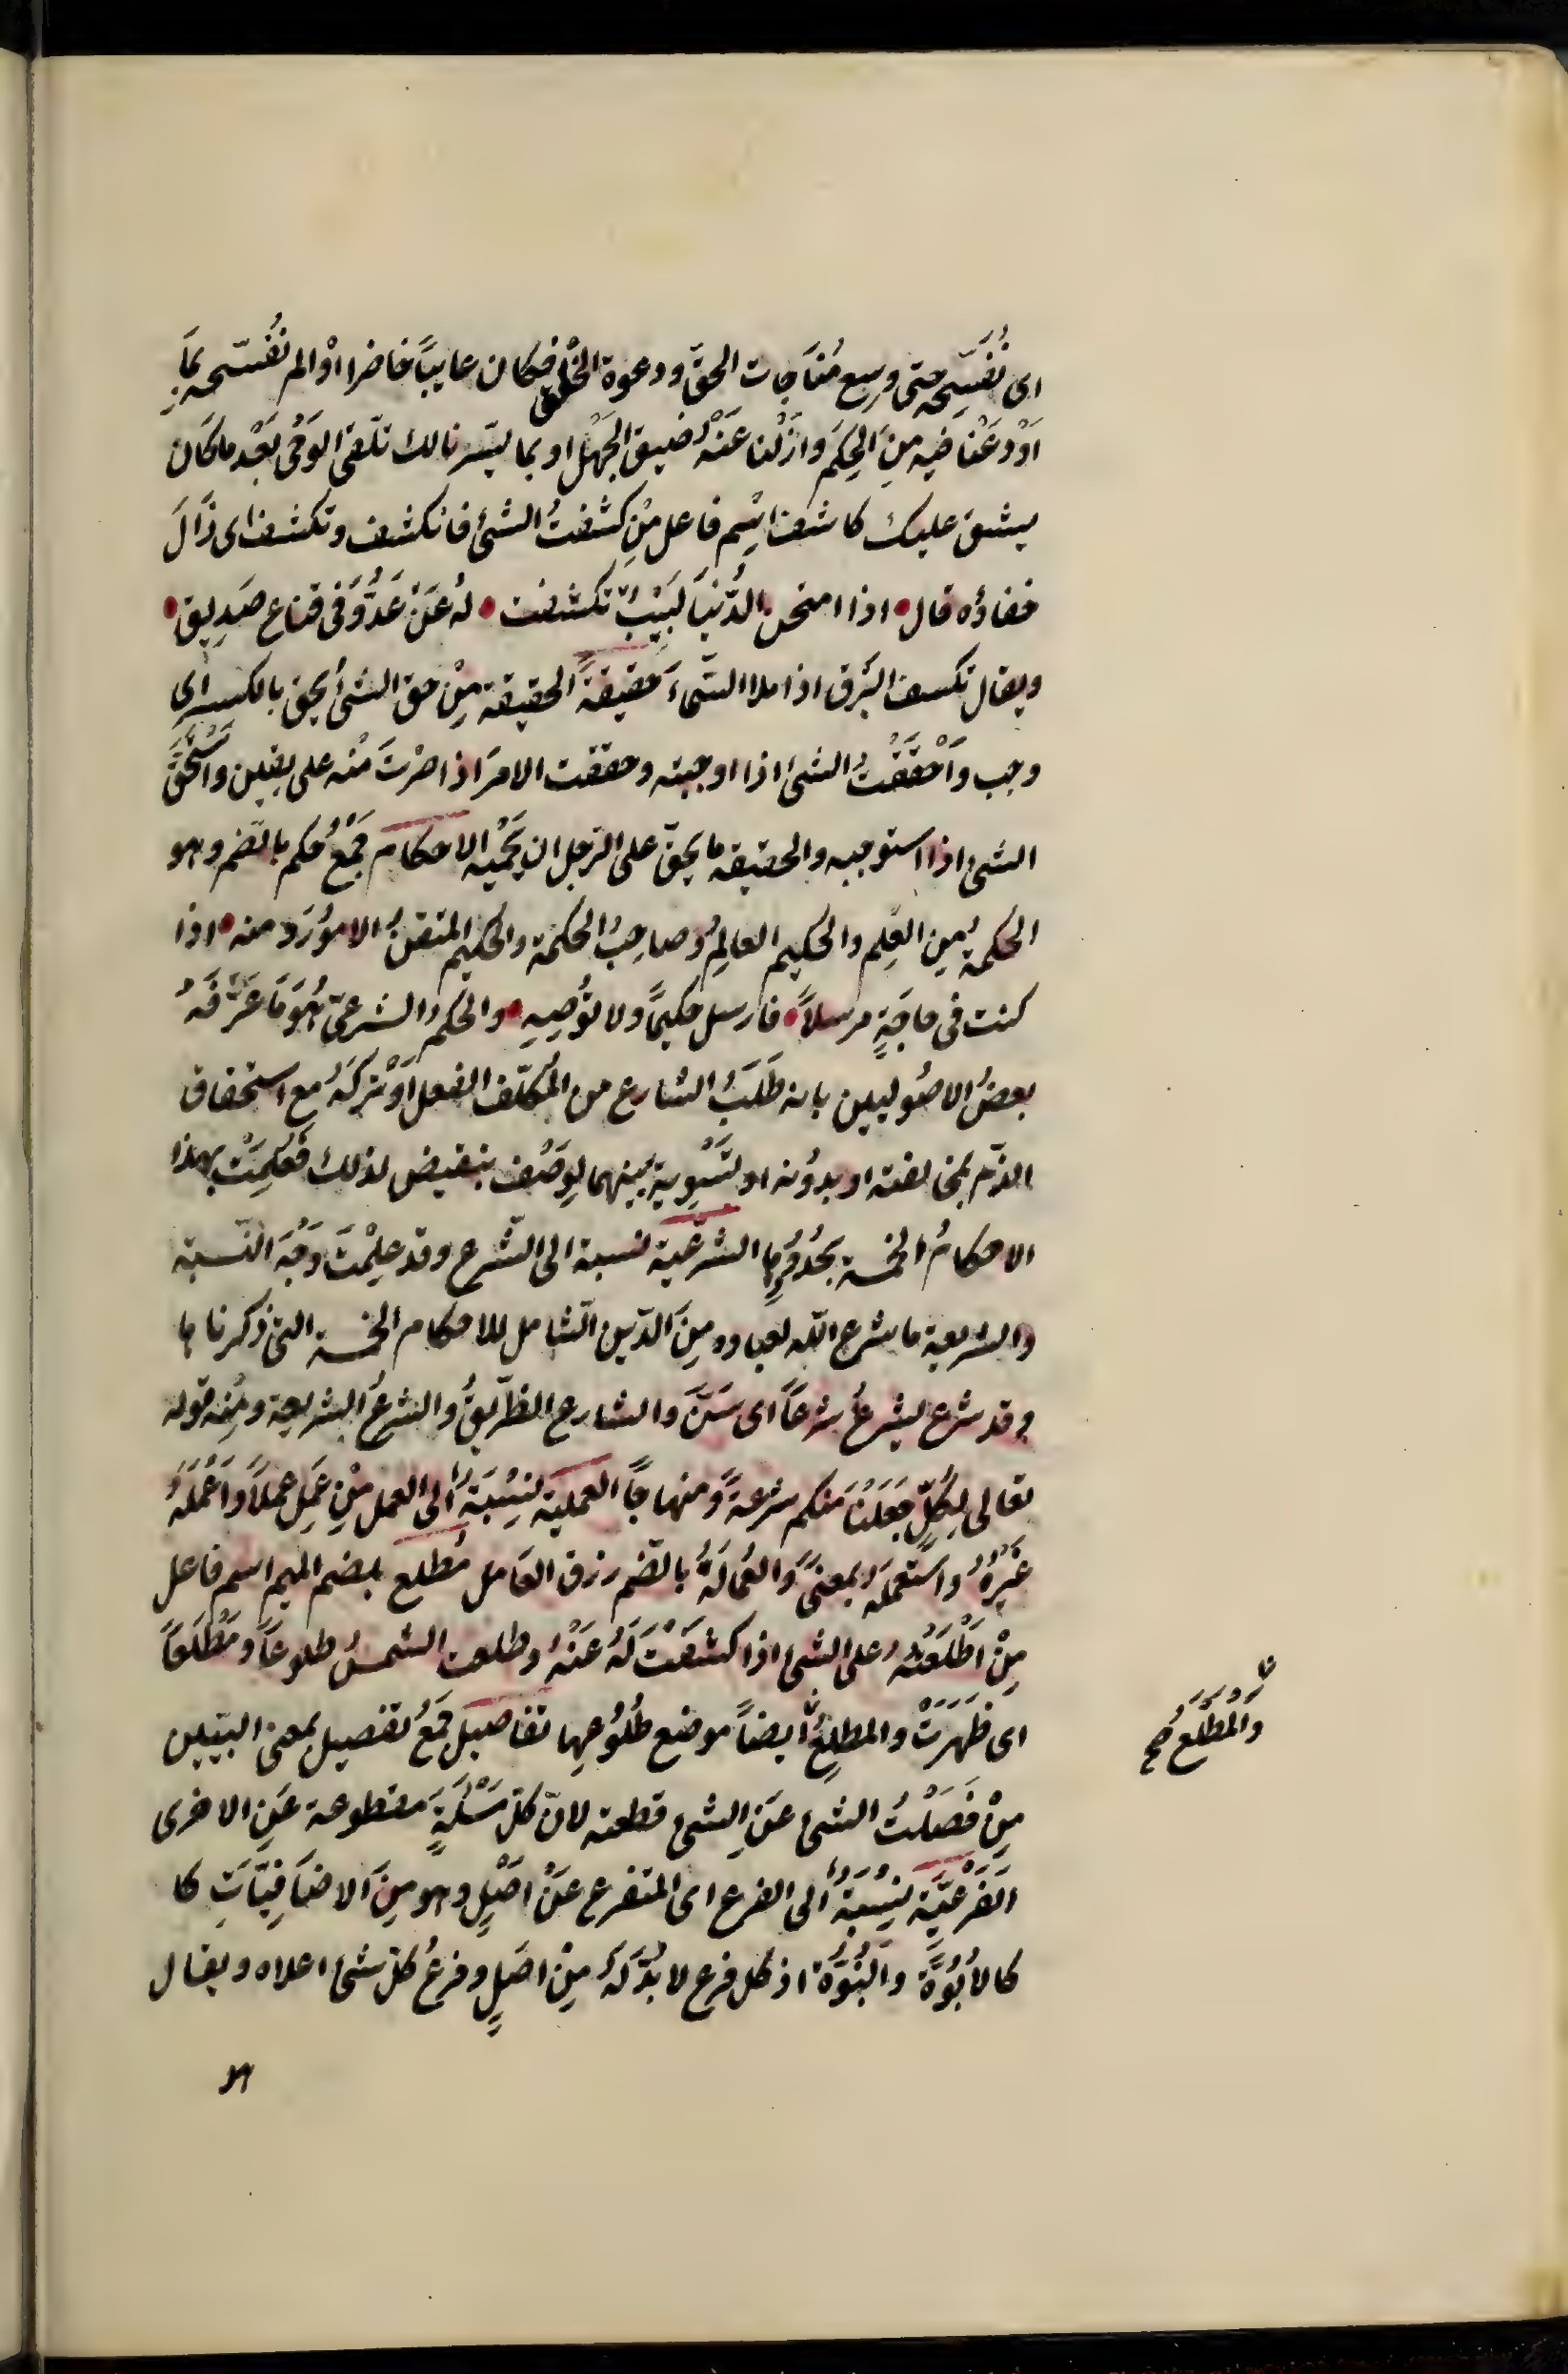 اى نُفَسِّحه حتى وسع مُنَاجات الحقّ ودعوة الخَلْق فكان عايبًا حاضرا اوْ الم نُفْسّحه بمَا
اَوْدَعْنا فيه مِنَ الحِكَم وازلْنا عَنْهُ ضيق الجَهْل او بما يسّرنا لك تلقى الوَحْى بَعْد ما كَان
يشق عليك كاشف اسْم فاعل مِنْ كشفتُ الشئ فانكشف وتكشف اى زَالَ
خفاؤه قال • اذا امتحن الدُّنيَا لَبيْبٌ تكشفت • لهُ عَنْ عَدُوٍّ فى قناع صَدِيق •
ويقال تكسف البَرق اذا ملا السَّمَاءَ حقيقةً الحقيقة مِنْ حق الشئ يحق بالكسر اى
وجب واَحْقَقْتُ الشئ اذا اوجبته وحققت الامرَ اذا صرْتَ مِنْه على يقين واسْتَحَقَّ
الشئ اذا استوجبه والحقيقه ما يحقّ على الرّجل ان يَحْميه الاحكام جَمْعُ حُكم بالضّم وهو
الحكمة مِن العِلم والحكيم العالِمُ وصاحِبُ الحكمة والحكيم المتقنُ الامُوْرَ ومنه • اذا
كنت فى حاجَةٍ مرسلاً • فارسل حكيمًا ولا توُصِيهِ • والحكمُ الشرعىّ هُوَ مَا عَرّفَهُ
بعضُ الاصُوليين بانه طَلَبُ الشارع من المُكلّف الفعل اَوْ تركَهُ مع استحقاق
الذّم بمخالفته او بدوُنه او تَسْوِيةً بينهما لوَصْف بنقيض لذلك فَعُلِمَتْ بهذا
الاحكامُ الخمسة بحُدُوْدِها الشرعّية نسبة الى الشّرع وقد عَلِمْتَ وَجْهَ النّسبة
والشريعة ما شرع اللّه لعباده مِنَ الدّين الشامل للاحكام الخمسة التى ذكرناها
وقد شرع يشرعُ شرعًا اى سَنّ والشارع الطَّريقُ والشرعُ الشريعة ومِنْه قوله
تعالى لِكُلٍّ جَعَلْنَا مَنكم شرعةً ومنهاجًا العملية نِسْبَةً الى العمل مِنْ عَمِلَ عَملاً واَعْمَلَهُ
غَيْرُهُ واسْتَعْملَهُ بمعنىً وَالعُمَالَةُ بالضّم رزق العَامل مُطلع بضم الميم اسم فاعل
مِنْ اَطْلَعْتُهُ على الشئ اذا كشفْتَ لَهُ عَنْهُ وطلعت الشمسُ طلوعًا ومَطْلَعًا
اى ظَهَرَتْ والمطلِعُ ايضًا موضع طُلُوعِها تفاصيل جَمْعُ تفصيل بمعنى التبيين
مِنْ فَصَلْتُ الشئ عَنِ الشئ قطعته لانّ كلّ مَسْئَلَةٍ مقطوعة عَنِ الاخرى
الفَرْعيّة نِسْبَةً الى الفرع اى المتفرع عَنْ اصْلٍ وهو مِنَ الاضَافِيّاتِ كا
كالاُبُوَّة والبُنُوَّة اذ كل فرع لا بُدَّ لَهُ مِنْ اصْلٍ وفرعُ كلّ شئ اعلاه ويقال
والمَطْلَعُ صح